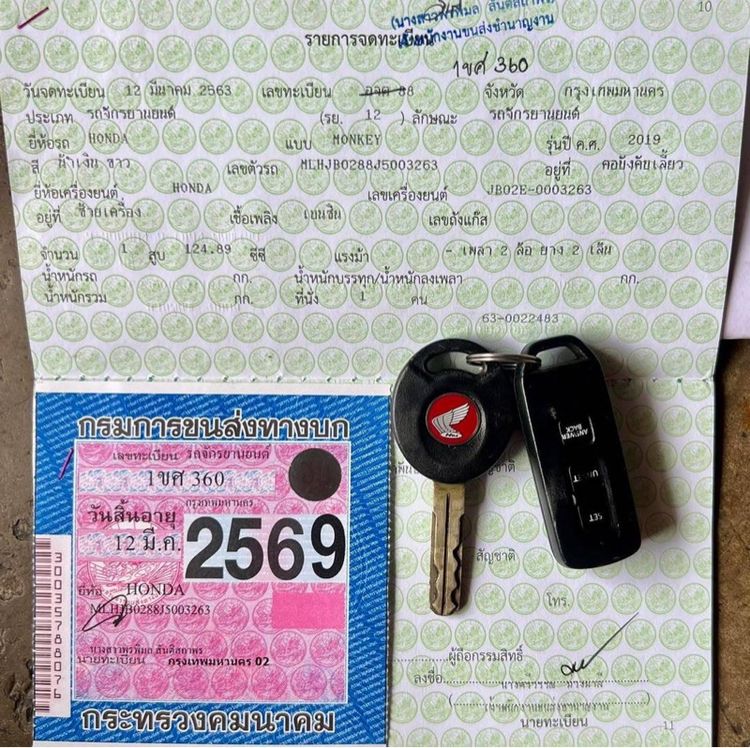 10
(นางสาวพรพิมล สันติสถาพร)
เจ้าพนักงานขนส่งชำนาญงาน
รายการจดทะเบียน
1ขศ 360
วันจดทะเบียน 12 มีนาคม 2563 เลขทะเบียน 88 จังหวัด กรุงเทพมหานคร
ประเภท รถจักรยานยนต์ (รย. 12 ) ลักษณะ รถจักรยานยนต์
ยี่ห้อรถ HONDA แบบ MONKEY รุ่นปี ค.ศ. 2019
สี น้ำเงิน ขาว เลขตัวรถ MLHJB0288J5003263 อยู่ที่ คอบังคับเลี้ยว
ยี่ห้อเครื่องยนต์ HONDA เลขเครื่องยนต์ JB02E-0003263
อยู่ที่ ซ้ายเครื่อง เชื้อเพลิง เบนซิน เลขถังแก๊ส
จำนวน 1 สูบ 124.89 ซีซี แรงม้า - เพลา 2 ล้อ ยาง 2 เส้น
น้ำหนักรถ กก. น้ำหนักบรรทุก/น้ำหนักลงเพลา กก.
น้ำหนักรวม กก. ที่นั่ง 1 คน
63-0022483
กรมการขนส่งทางบก
เลขทะเบียน รถจักรยานยนต์
1ขศ 360
กรุงเทพมหานคร
วันสิ้นอายุ
12 มี.ค. 2569
ยี่ห้อ HONDA
MLHJB0288J5003263
นางสาวพรพิมล สันติสถาพร
นายทะเบียน กรุงเทพมหานคร 02
กระทรวงคมนาคม
30035788076
ANSWER BACK
SET
สัญชาติ
สัญชาติ
โทร.
ผู้ถือกรรมสิทธิ์
ลงชื่อ
นายทะเบียน
11